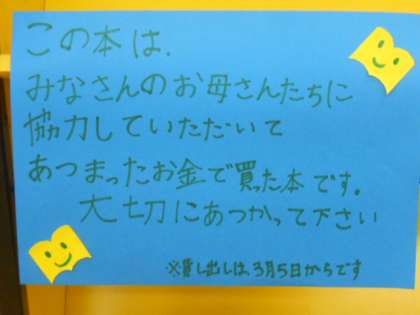 この本は、
みなさんのお母さんたちに
協力していただいて
あつまったお金で買った本です。
大切にあつかって下さい
※貸し出しは、3月5日からです